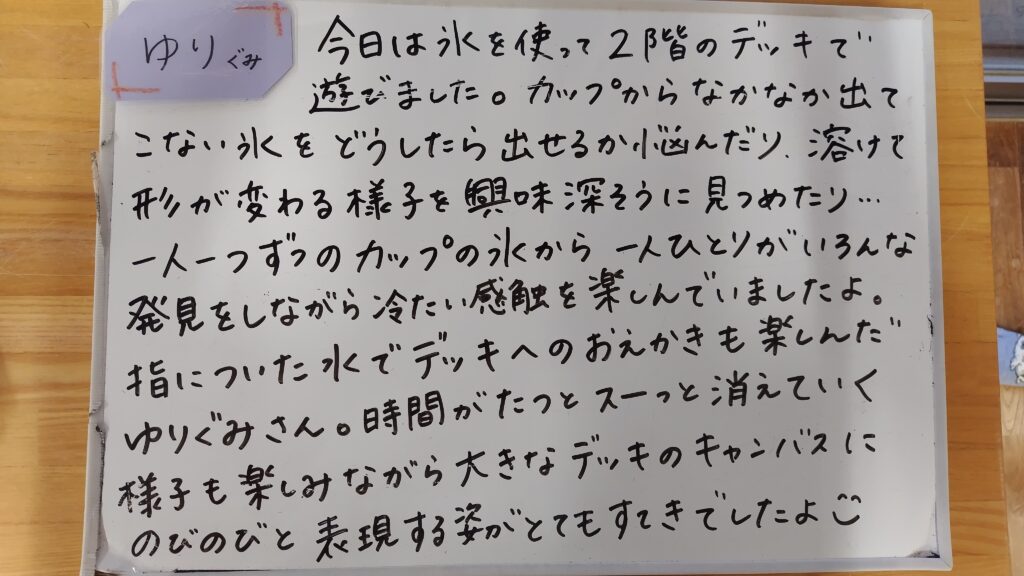 ゆりぐみ
今日は氷を使って2階のデッキで
遊びました。カップからなかなか出て
こない氷をどうしたら出せるか悩んだり、溶けて
形が変わる様子を興味深そうに見つめたり…
一人一つずつのカップの氷から一人ひとりがいろんな
発見をしながら冷たい感触を楽しんでいましたよ。
指についた水でデッキへのおえかきも楽しんだ
ゆりぐみさん。時間がたつとスーっと消えていく
様子も楽しみながら大きなデッキのキャンバスに
のびのびと表現する姿がとてもすてきでしたよ